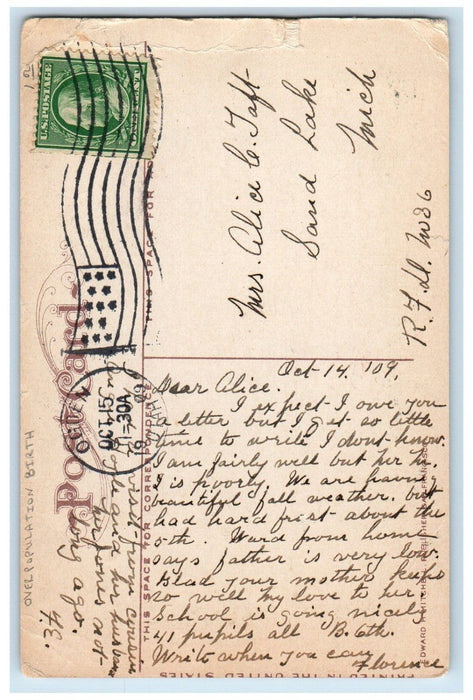 U.S. POSTAGE
ONE CENT
Post Card
THIS SPACE FOR
Mrs. Alice C. Taft
Sand Lake
Mich
R.F.D. No 36
OCT 15
30A
19 09
THIS SPACE FOR CORRESPONDENCE
Oct-14, '09,
Dear Alice.
I expect I owe you
a letter but I get so little
time to write I dont know.
I am fairly well but her
is poorly. We are having
beautiful fall weather. but
had hard frost about the
5th. Word from home
says father is very low.
Glad your mother keeps
so well my love to her.
School is going nicely
41 pupils all B. 6th.
Write when you can
Florence
visit from cousin
and her husband
Jones not
long ago.
F.B.
OVERPOPULATION BIRTH
EDWARD H. MITCHELL, PUBLISHER, SAN FRANCISCO
PRINTED IN THE UNITED STATES